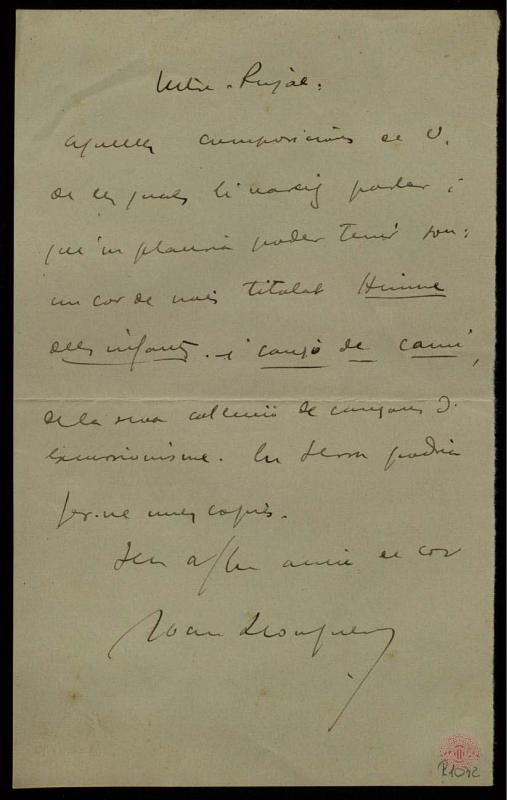 Mtre. Pujol:
Aquelles composicions de V.
de les quals li vareig parlar i
que'm plauria poder tenir son:
un cor de nois titolat Himne
dels infants. i cançó de camí,
de la seva col·lecció de cançons d.
excursionisme. En Serra podria
fer-ne unes copies.
Seu affm amic de cor
Joan Llongueres
R.1042